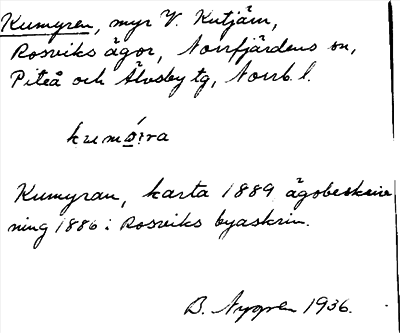 Kumyren, myr V. Kutjärn,
Rosviks ägor, Norrfjärdens sn,
Piteå och Älvsby tg, Norrb. l.
Kumyran, karta 1889 ägobeskriv
ning 1886 i Rosviks byaskrin.
B. Nygren 1936.